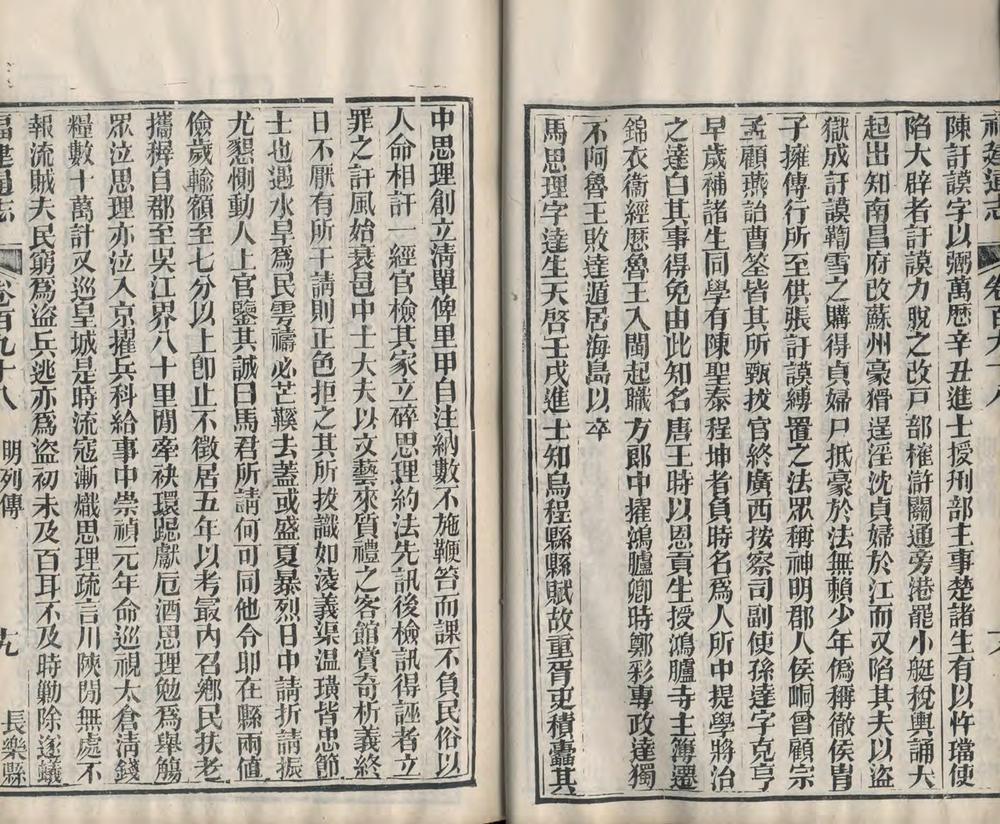 福建通志 卷百九十八
陳訏謨字以弼萬曆辛丑進士授刑部主事楚諸生有以忤璫使
陷大辟者訏謨力脫之改戸部榷滸關通旁港罷小艇稅輿誦大
起出知南昌府改蘇州豪猾逞淫沈貞婦於江而又陷其夫以盜
獄成訏謨鞫雪之購得貞婦尸抵豪於法無賴少年僞稱徹侯胄
子擁傳行所至供張訏謨縛置之法眾稱神明郡人侯峒曾顧宗
孟顧燕詒曹筌皆其所甄拔官終廣西按察司副使孫達字克亨
早歲補諸生同學有陳聖泰程坤者負時名爲人所中提學將治
之達白其事得免由此知名唐王時以恩貢生授鴻臚寺主簿遷
錦衣衞經歷魯王入閩起職方郎中擢鴻臚卿時鄭彩專政達獨
不阿魯王敗達遁居海島以卒
馬思理字達生天啓壬戌進士知烏程縣縣賦故重胥吏積蠹其
中思理創立淸單俾里甲自注納數不施鞭笞而課不負民俗以
人命相訐一經官檢其家立碎思理約法先訊後檢訊得誣者立
罪之訐風始衰邑中士大夫以文藝來質禮之客館賞奇析義終
日不厭有所干請則正色拒之其所拔識如淩義渠温璜皆忠節
士也遇水旱爲民雩禱必芒鞵去蓋或盛夏暴烈日中請折請振
尤懇惻動人上官鑒其誠曰馬君所請何可同他令即在縣兩値
儉歲輸額至七分以上卽止不徵居五年以考最内召鄉民扶老
攜穉自郡至吳江界八十里閒牽袂環跽獻卮酒思理勉爲舉觴
眾泣思理亦泣入京擢兵科給事中崇禎元年命巡視太倉淸錢
糧數十萬計又巡皇城是時流寇漸熾思理疏言川陝閒無處不
報流賊夫民窮爲盜兵逃亦爲盜初未及百耳不及時勦除遂蟻
福建通志 卷百九十八 明列傳 十九 長樂縣